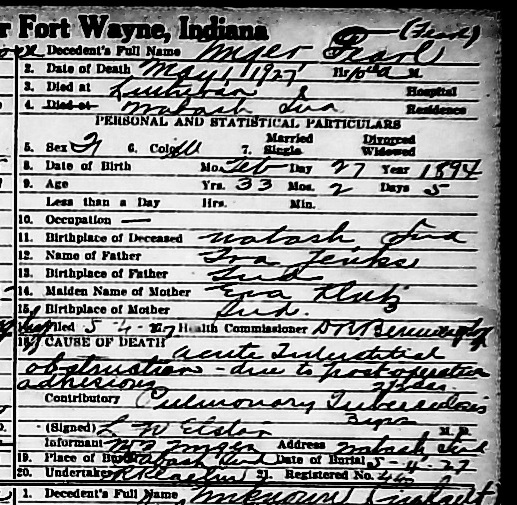 r Fort Wayne, Indiana
1. Decedent's Full Name Myer Pearl (Pearl)
2. Date of Death May 1, 1927 Hr. 10 a M.
3. Died at Lutheran Hospital
4. Died at Wabash Ind Residence
PERSONAL AND STATISTICAL PARTICULARS
5. Sex F 6. Color W 7. Married Single Divorced Widowed
8. Date of Birth Mo. Feb Day 27 Year 1894
9. Age Yrs. 33 Mos. 2 Days 5
Less than a Day Hrs. Min.
10. Occupation —
11. Birthplace of Deceased Wabash, Ind
12. Name of Father Ira Jenks
13. Birthplace of Father Ind
14. Maiden Name of Mother Eva
15. Birthplace of Mother Ind.
Filed 5-4-27 Health Commissioner
18. CAUSE OF DEATH acute Intestinal
obstruction - due to post operative
adhesions
Contributory Pulmonary Tuberculosis
3 yrs
(Signed) L W Elston M. D.
Informant Myer Address Wabash Ind
19. Place of Burial Wabash Ind Date of Burial 5-4-27
20. Undertaker 21. Registered No. 440
1. Decedent's Full Name Unknown